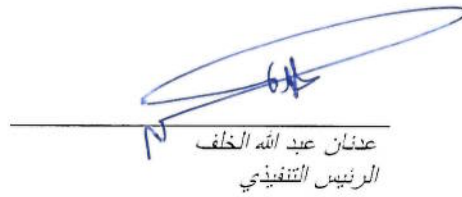 عدنان عبد الله الخلف
الرئيس التنفيذي